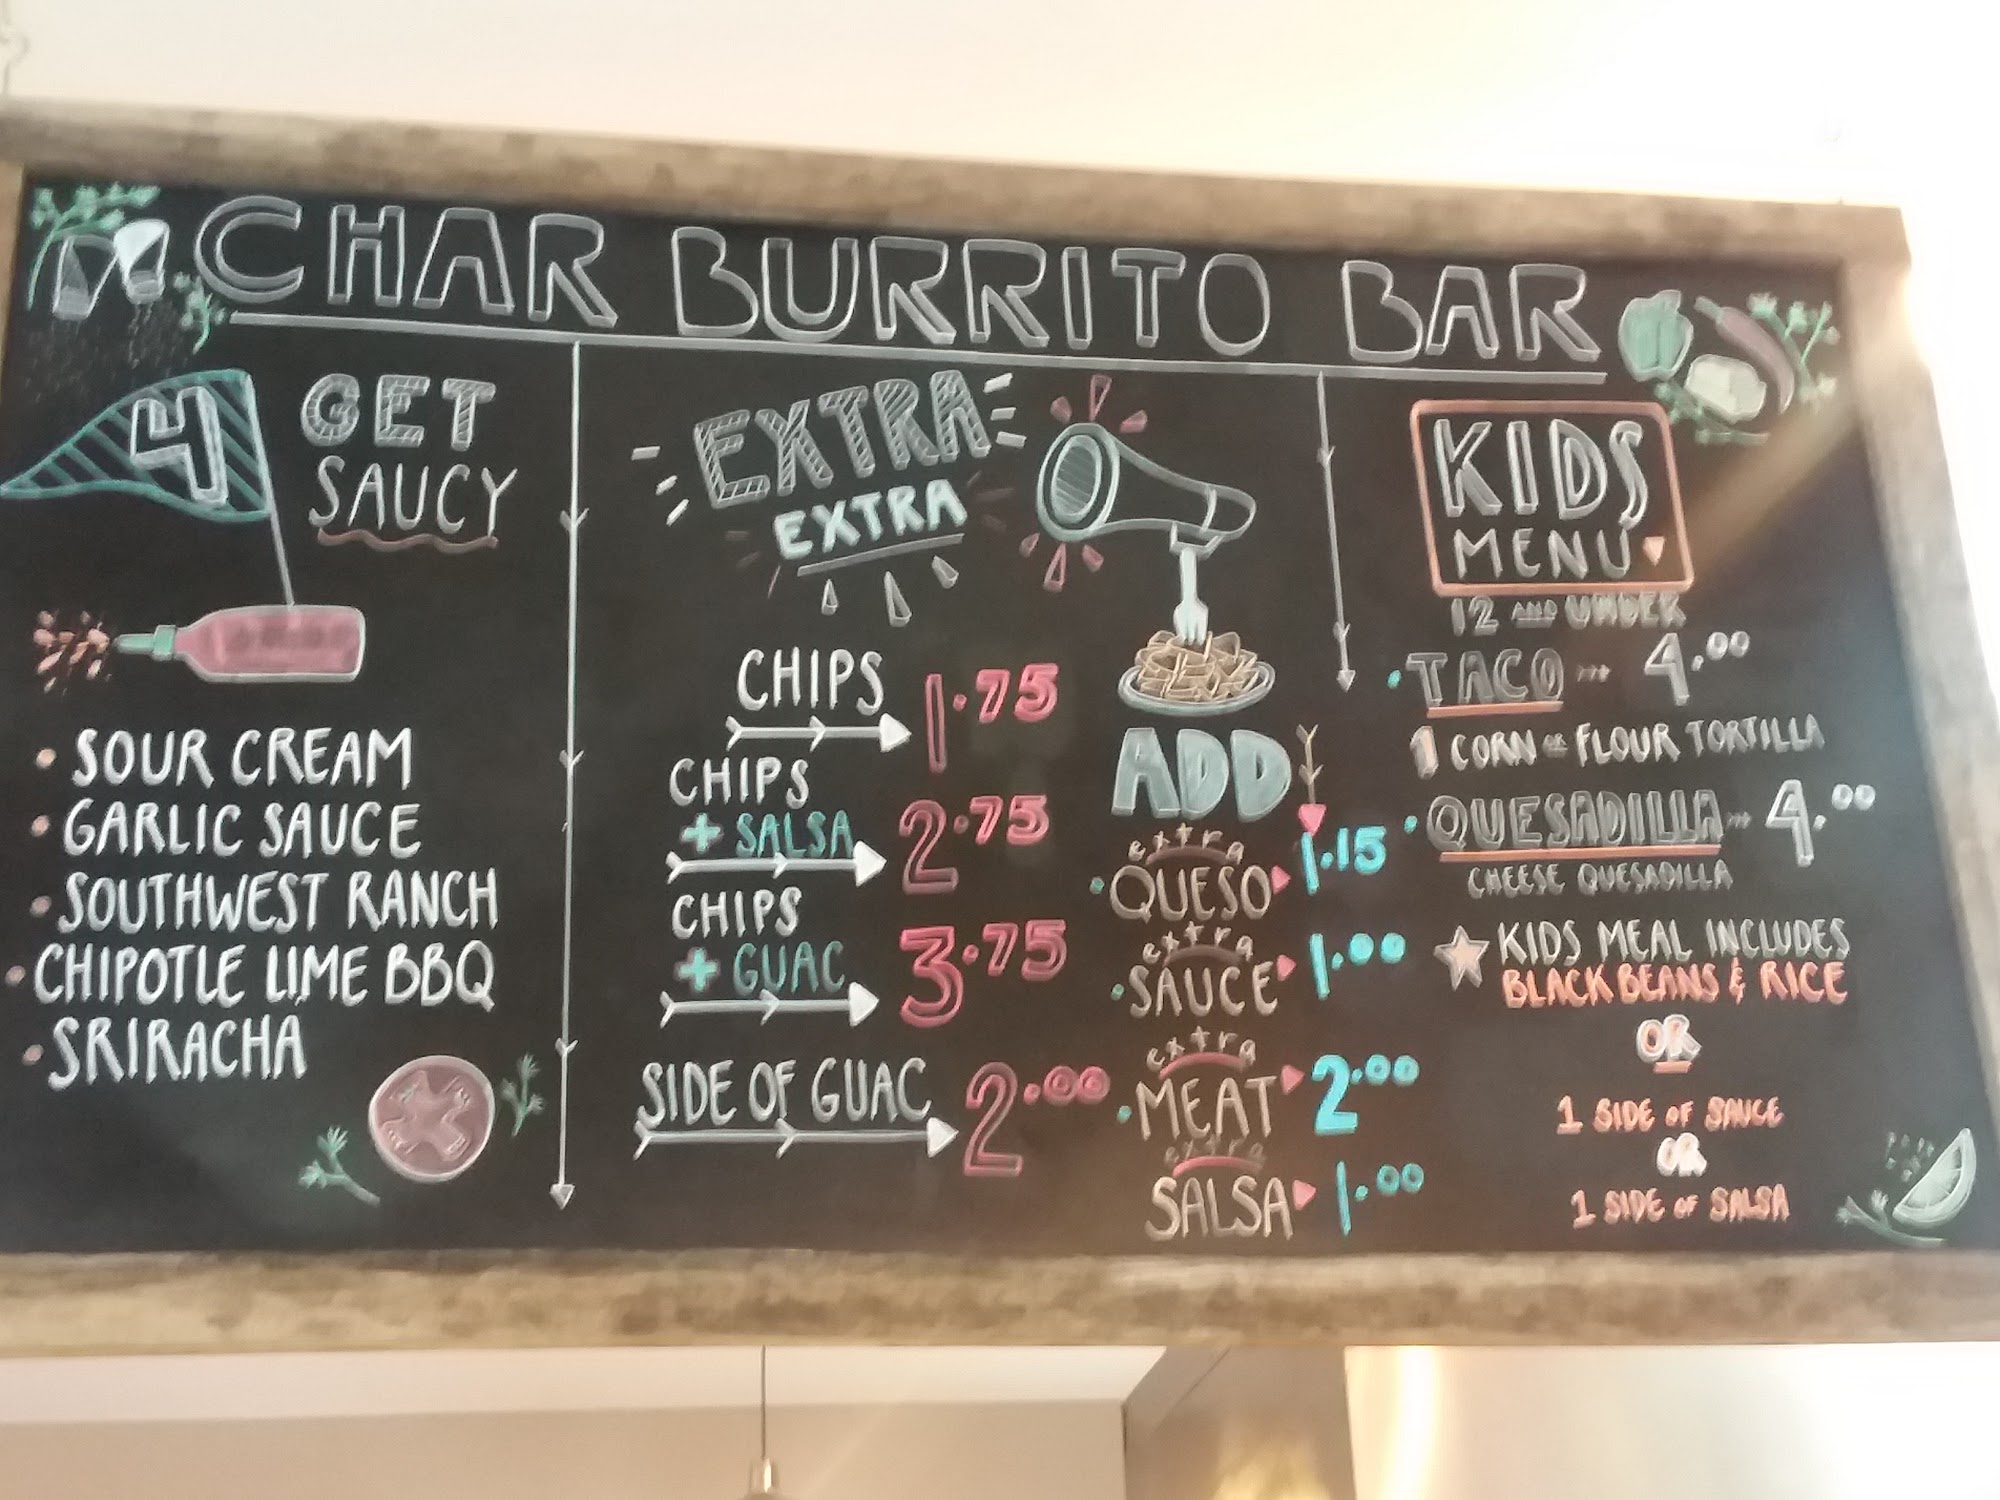 CHAR BURRITO BAR
4
GET
SAUCY
• SOUR CREAM
• GARLIC SAUCE
• SOUTHWEST RANCH
• CHIPOTLE LIME BBQ
• SRIRACHA
EXTRA
EXTRA
CHIPS 1.75
CHIPS
+ SALSA 2.75
CHIPS
+ GUAC 3.75
SIDE OF GUAC 2.00
ADD
extra
• QUESO 1.15
extra
• SAUCE 1.00
extra
• MEAT 2.00
extra
SALSA 1.00
KIDS
MENU
12 AND UNDER
• TACO ... 4.00
1 CORN OR FLOUR TORTILLA
• QUESADILLA ... 4.00
CHEESE QUESADILLA
KIDS MEAL INCLUDES
BLACK BEANS & RICE
OR
1 SIDE OF SAUCE
OR
1 SIDE OF SALSA